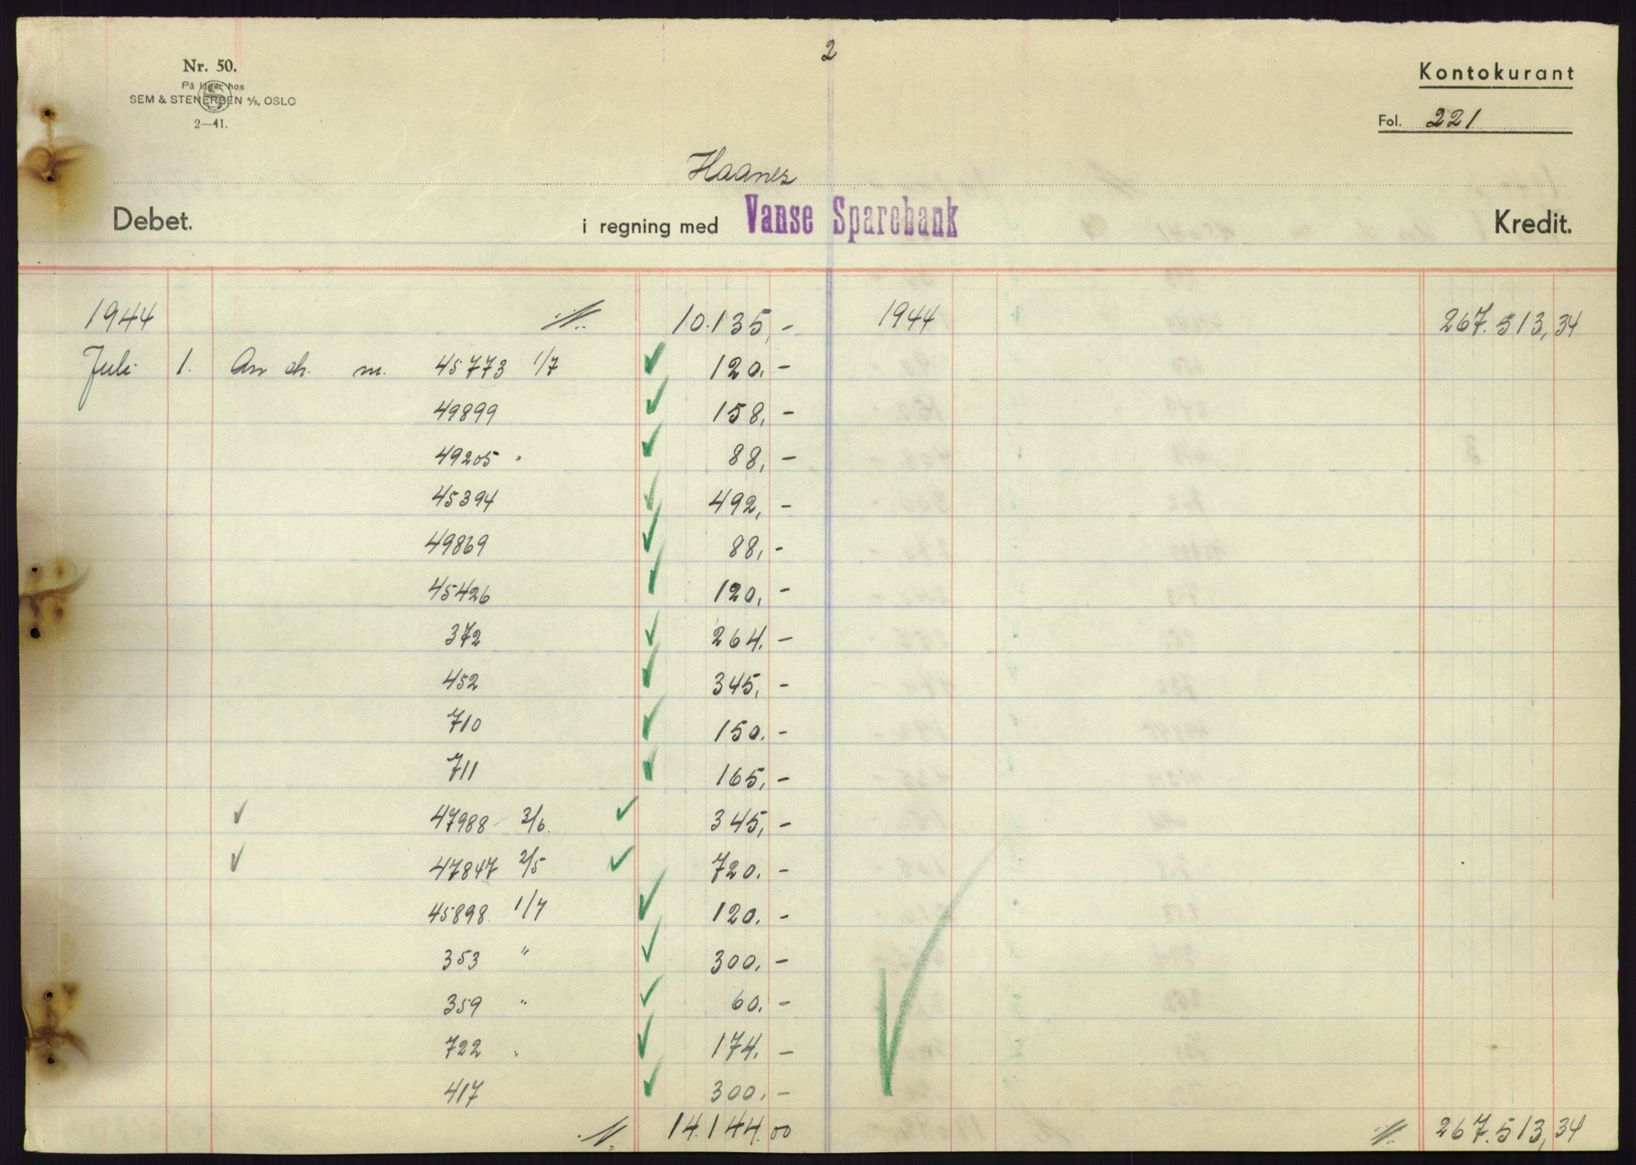 2
Nr. 50.
På lager hos
SEM & STENERSEN A/S, OSLO
2—41.
Kontokurant
Fol. 221
Haanes
Debet. i regning med Vanse Sparebank Kredit.
1944 10.135,- 1944 267.513,34
Juli 1. An ch. m. 45773 1/7 120.-
49899 158,-
49205 " 88,-
45394 492,-
49869 88,-
45426 120,-
372 264.-
452 345,-
710 150.-
711 165,-
47988 3/6. 345,-
47847 2/5 720.-
45898 1/7 120.-
353 " 300.-
359 " 60.-
722 " 174.-
417 300.-
14.144.00 267.513,34